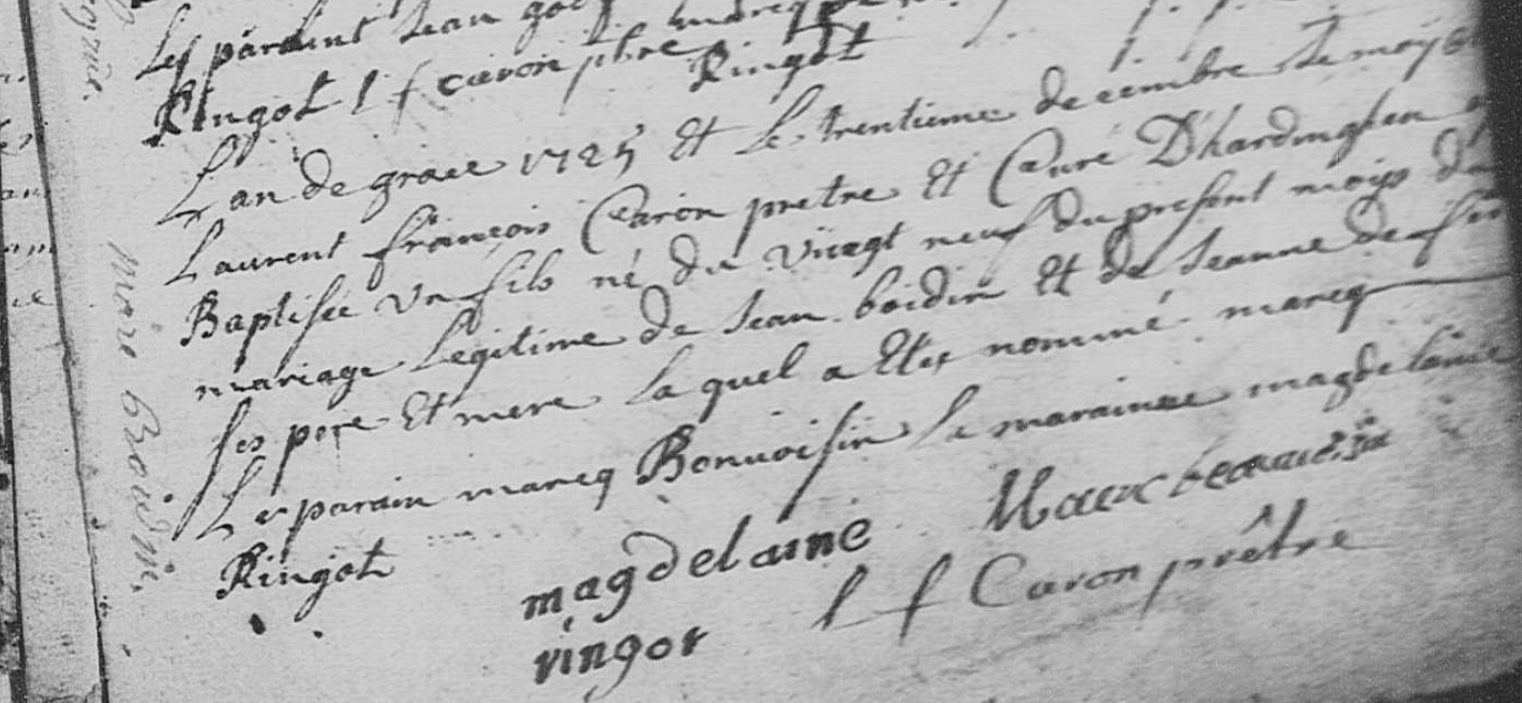 Les paraint Jean
Ringot l f caron pbre Ringot
L an de grace 1725 Et Le trentieme decembre Je moy
Laurent françois Caron pretre Et Curé D'hardinghen
Baptisée un fils né du vingt neuf du present mois du
mariage Legitime de Jean boidin Et de Jeanne de
ses pere Et mere laquel a Etez nommé marcq
Le parain marcq Bonvoisin La marainne magdelaine
Ringot
magdelaine
ringot
Marc beauvoisin
l f Caron prêtre
marc Boidin.